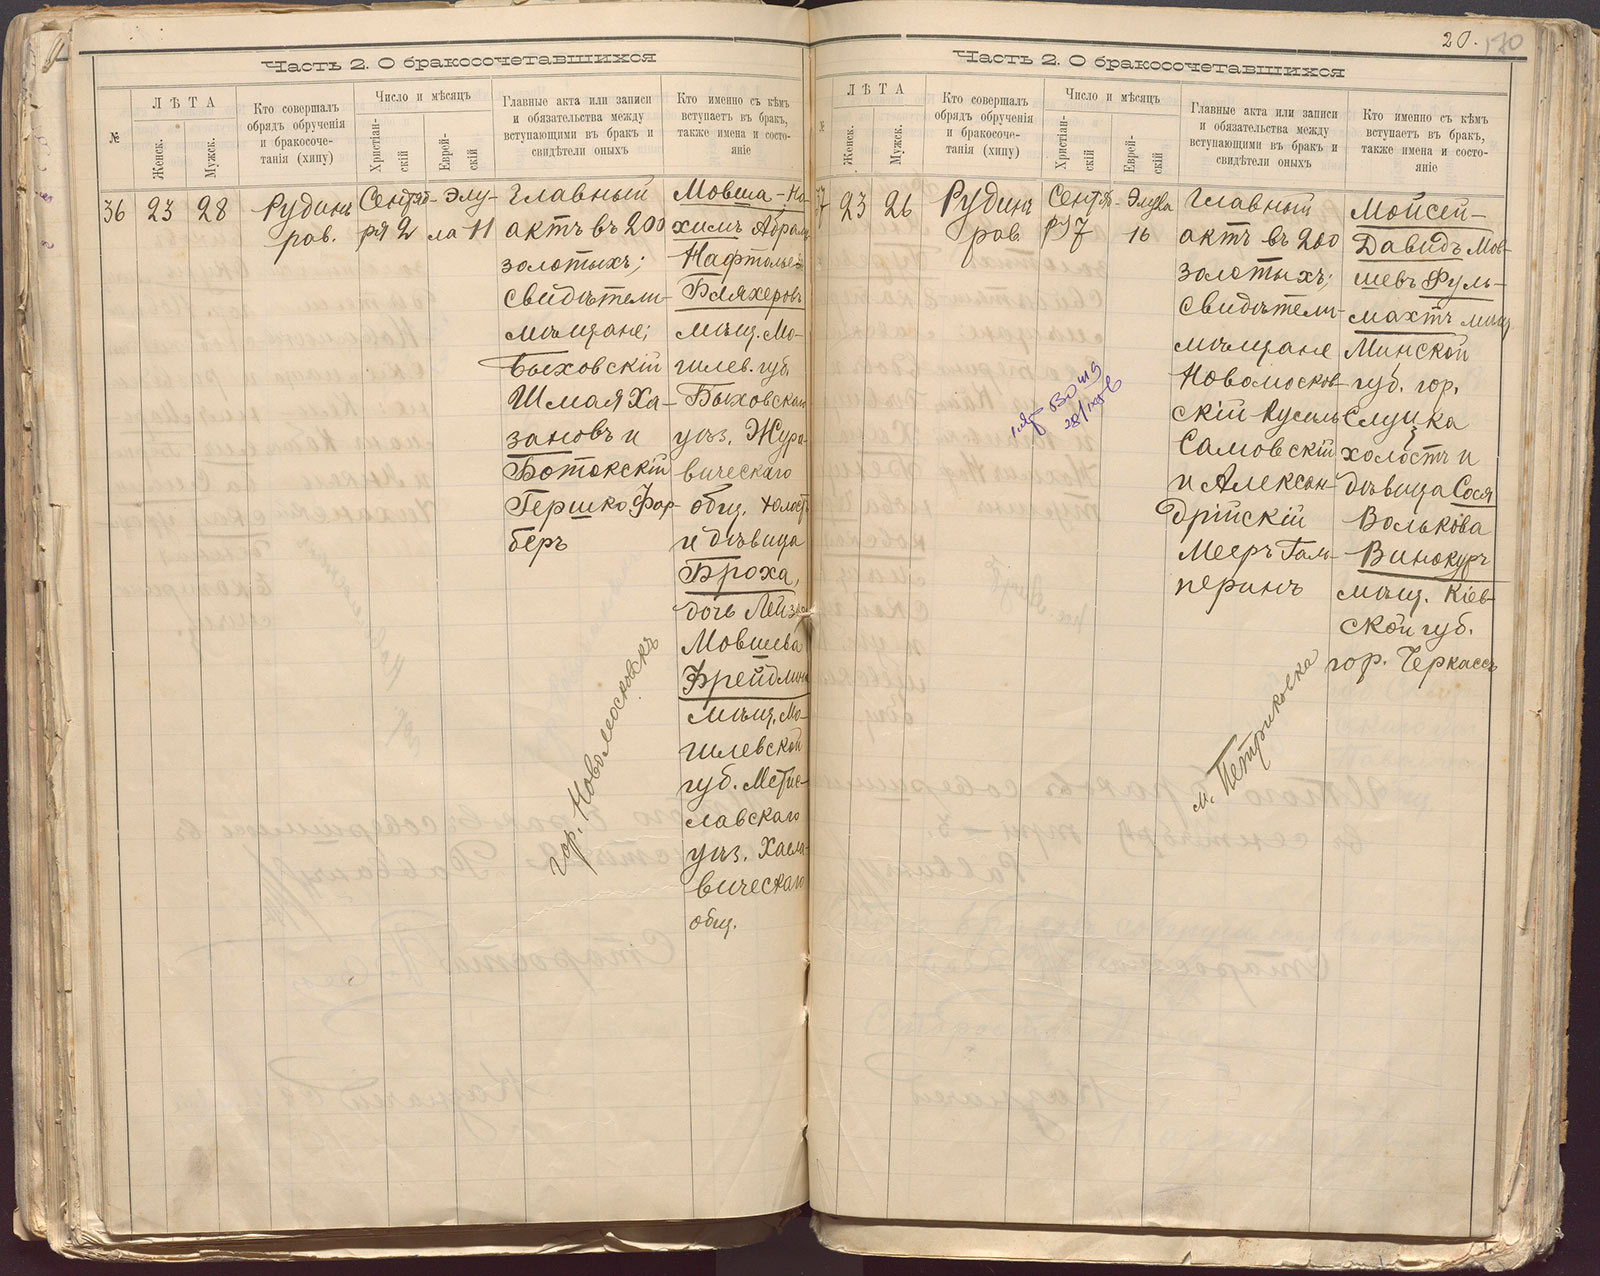 Часть 2. О бракосочетавшихся
№
ЛѢТА
Женск.
Мужск.
Кто совершалъ
обрядъ обрученія
и бракосоче-
танія (хипу)
Число и мѣсяцъ
Христіан-
скій
Еврей-
скій
Главные акта или записи
и обязательства между
вступающими въ бракъ и
свидѣтели оныхъ
Кто именно съ кѣмъ
вступаетъ въ бракъ,
также имена и состо-
яніе
36
23
28
Рудинъ
рав.
Сентяб-
ря 2
Элу-
ла 11
Главный
актъ въ 200
золотыхъ;
свидѣтели-
мѣщане;
Быховскій
Шмая Ха-
зановъ и
Гершко Фар-
беръ
Мовша-На-
химъ Абрам
Нафтольевъ
Бляхеровъ
мѣщ. Мо-
гилев. губ.
Быховскаго
уѣз. Жура-
вическаго
общ. холостъ
и дѣвица
Броха,
дочь Лейзера
Мовшева
Фрейдлина
мѣщ. Мо-
гилевской
губ. Мстис-
лавскаго
уѣз. Хасла-
вическаго
общ.
гор. Новомосковскъ
20.
170
Часть 2. О бракосочетавшихся
№
ЛѢТА
Женск.
Мужск.
Кто совершалъ
обрядъ обрученія
и бракосоче-
танія (хипу)
Число и мѣсяцъ
Христіан-
скій
Еврей-
скій
Главные акта или записи
и обязательства между
вступающими въ бракъ и
свидѣтели оныхъ
Кто именно съ кѣмъ
вступаетъ въ бракъ,
также имена и состо-
яніе
37
23
26
Рудинъ
рав.
Сентяб-
Элула
16
Главный
актъ въ 200
золотыхъ;
свидѣтели-
мѣщане
Новомосков-
скій
и Алексан-
дрійскій
Мееръ Галь-
перинъ
Мойсей-
Давидъ Мов-
шевъ Фуль-
махтъ мѣщ.
Минской
губ. гор.
Слуцка
холостъ и
дѣвица Сося
Волькова
Винокуръ
мѣщ. Кіев-
ской губ.
гор. Черкассъ
м. Петриковка